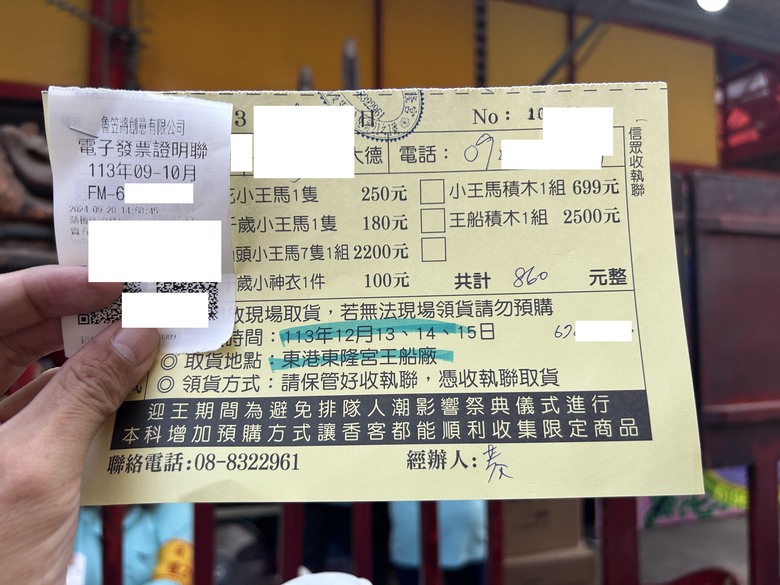 魯笠將創意有限公司
電子發票證明聯
113年09-10月
FM-6
2024-09-28 14:50:45
隨機
3 日 No: 1
大德 電話: 09
信眾收執聯
小王馬1隻 250元 小王馬積木1組 699元
歲小王馬1隻 180元 王船積木1組 2500元
頭小王馬7隻1組 2200元
歲小神衣1件 100元 共計 860 元整
現場取貨，若無法現場領貨請勿預購
時間：113年12月13、14、15日
◎ 取貨地點：東港東隆宮王船廠
◎ 領貨方式：請保管好收執聯，憑收執聯取貨
迎王期間為避免排隊人潮影響祭典儀式進行
本科增加預購方式讓香客都能順利收集限定商品
聯絡電話:08-8322961 經辦人: